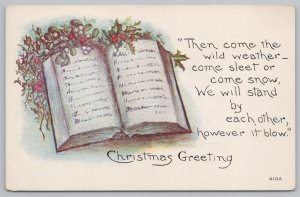 "Then come the
wild weather—
come sleet or
come snow,
We will stand
by
each other,
however it blow."
Christmas Greeting
410A